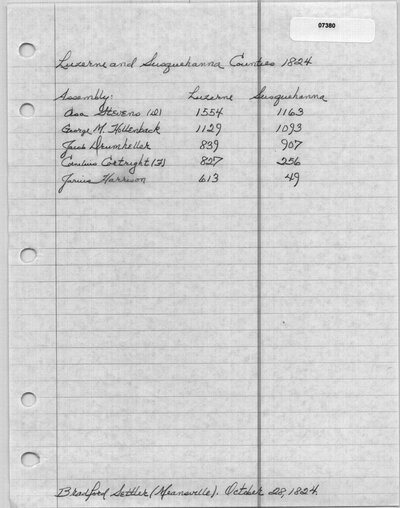 07380
Luzerne and Susquehanna Counties 1824
Assembly: Luzerne Susquehanna
Asa Stevens (D) 1554 1163
George M. Hollenback 1129 1093
Jacob Drumheller 839 907
Cornelius Cortright (F) 827 256
Jarius Harrison 613 49
Bradford Settler (Meansville). October 28, 1824.